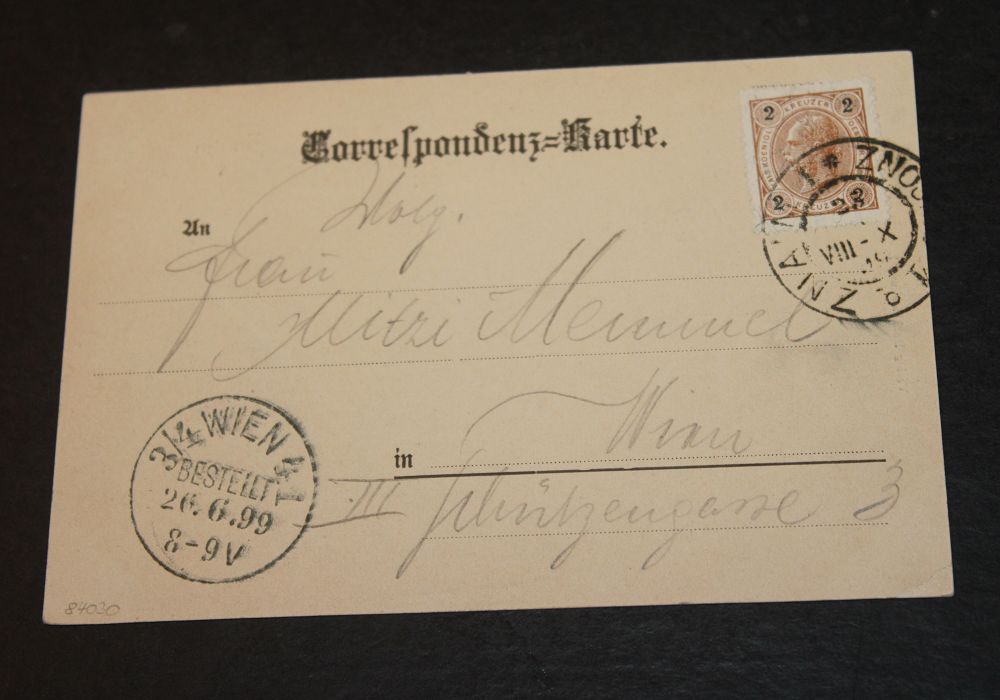 Correspondenz=Karte.
2 KREUZER 2
2 KREUZER 2
ZNAIM * ZNOJ
25
VIII - X
An
Frau
Mitzi Memmel
in Wien
III Schützengasse 3
3/4 WIEN 4 1
BESTELLT
26.6.99
8-9V
84030